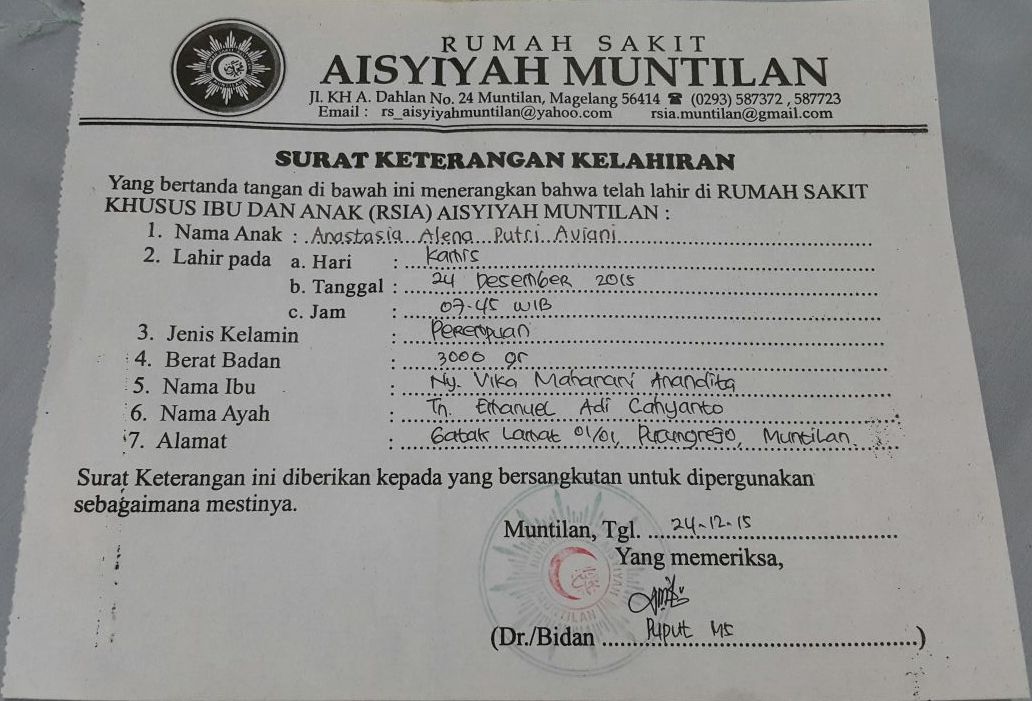 RUMAH SAKIT
AISYIYAH MUNTILAN
Jl. KH A. Dahlan No. 24 Muntilan, Magelang 56414 ☎ (0293) 587372 , 587723
Email : rs_aisyiyahmuntilan@yahoo.com rsia.muntilan@gmail.com
SURAT KETERANGAN KELAHIRAN
Yang bertanda tangan di bawah ini menerangkan bahwa telah lahir di RUMAH SAKIT
KHUSUS IBU DAN ANAK (RSIA) AISYIYAH MUNTILAN :
1. Nama Anak : Anastasia Alena Putri Aviani
2. Lahir pada a. Hari : Kamis
b. Tanggal : 24 Desember 2015
c. Jam : 07.45 WIB
3. Jenis Kelamin : Perempuan
4. Berat Badan : 3000 gr
5. Nama Ibu : Ny. Vika Maharani Anandita
6. Nama Ayah : Tn. Emanuel Adi Cahyanto
7. Alamat : Gatak Lamat 01/01, Muntilan
Surat Keterangan ini diberikan kepada yang bersangkutan untuk dipergunakan
sebagaimana mestinya.
Muntilan, Tgl. 24-12-15
Yang memeriksa,
(Dr./Bidan Puput MS )